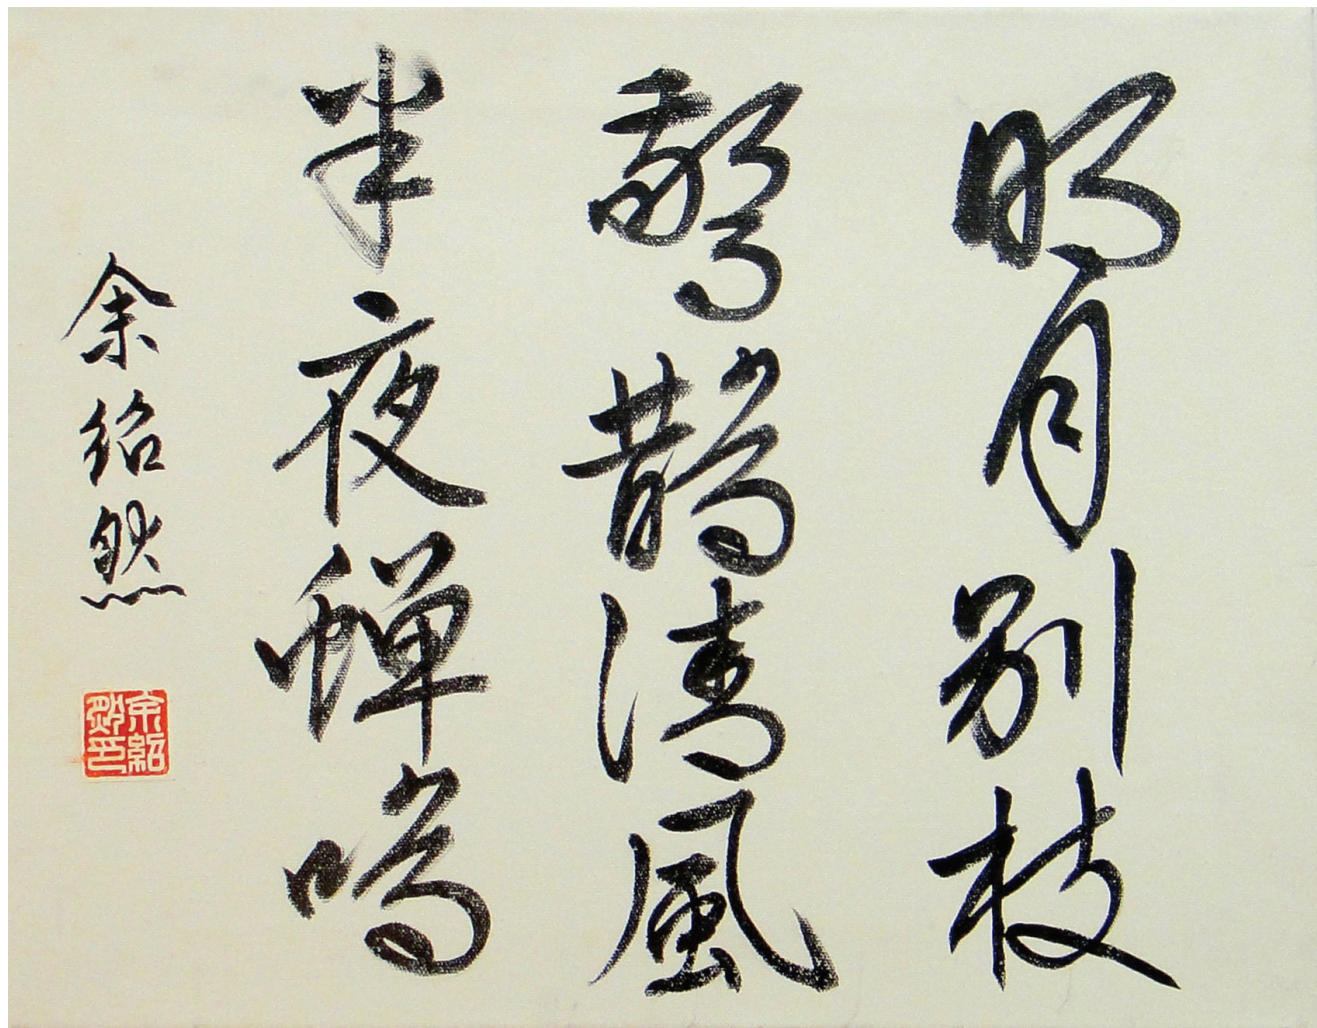 明月别枝
驚鵲清風
半夜蟬鳴
余紹然
余紹
然印